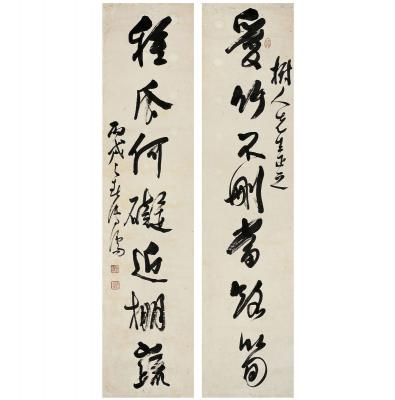 愛竹不刪當路筍
樹人先生正之
種瓜何礙近棚蔬
丙戌之春溥儒